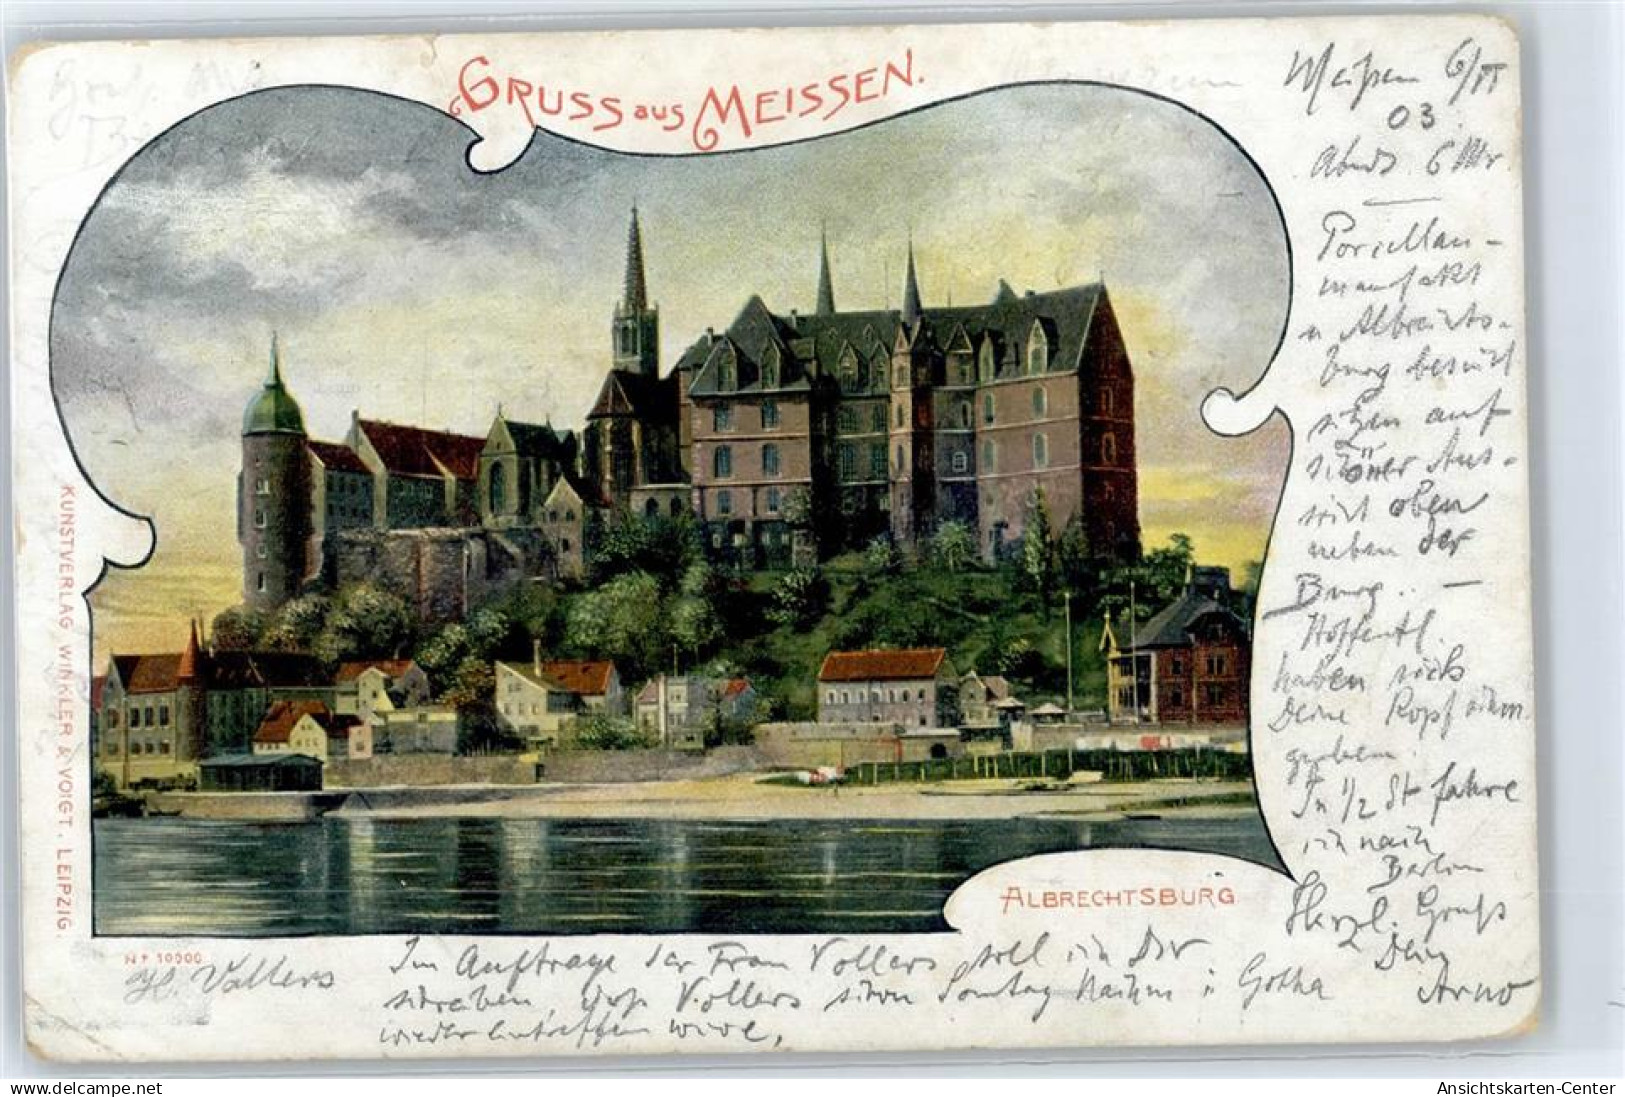 GRUSS aus MEISSEN.
Meißen 6/VI
03.
Abends 6 Uhr
Porzellan-
manufakt
u Albrechts-
burg besucht
sitzen auf
schöner Aus-
sicht oben
neben der
Burg. –
Hoffentl.
haben sich
Deine Kopfschm.
gegeben.
In 1/2 St fahre
ich nach
Berlin
Herzl. Gruß
Dein
Arno
ALBRECHTSBURG
KUNSTVERLAG WINKLER & VOIGT. LEIPZIG.
Nr 10000
H. Vollers
Im Auftrage der Frau Vollers soll ich Dir
schreiben, daß Vollers schon Sonntag Nachm i Gotha
wieder eintreffen wird,
www.delcampe.net
Ansichtskarten-Center